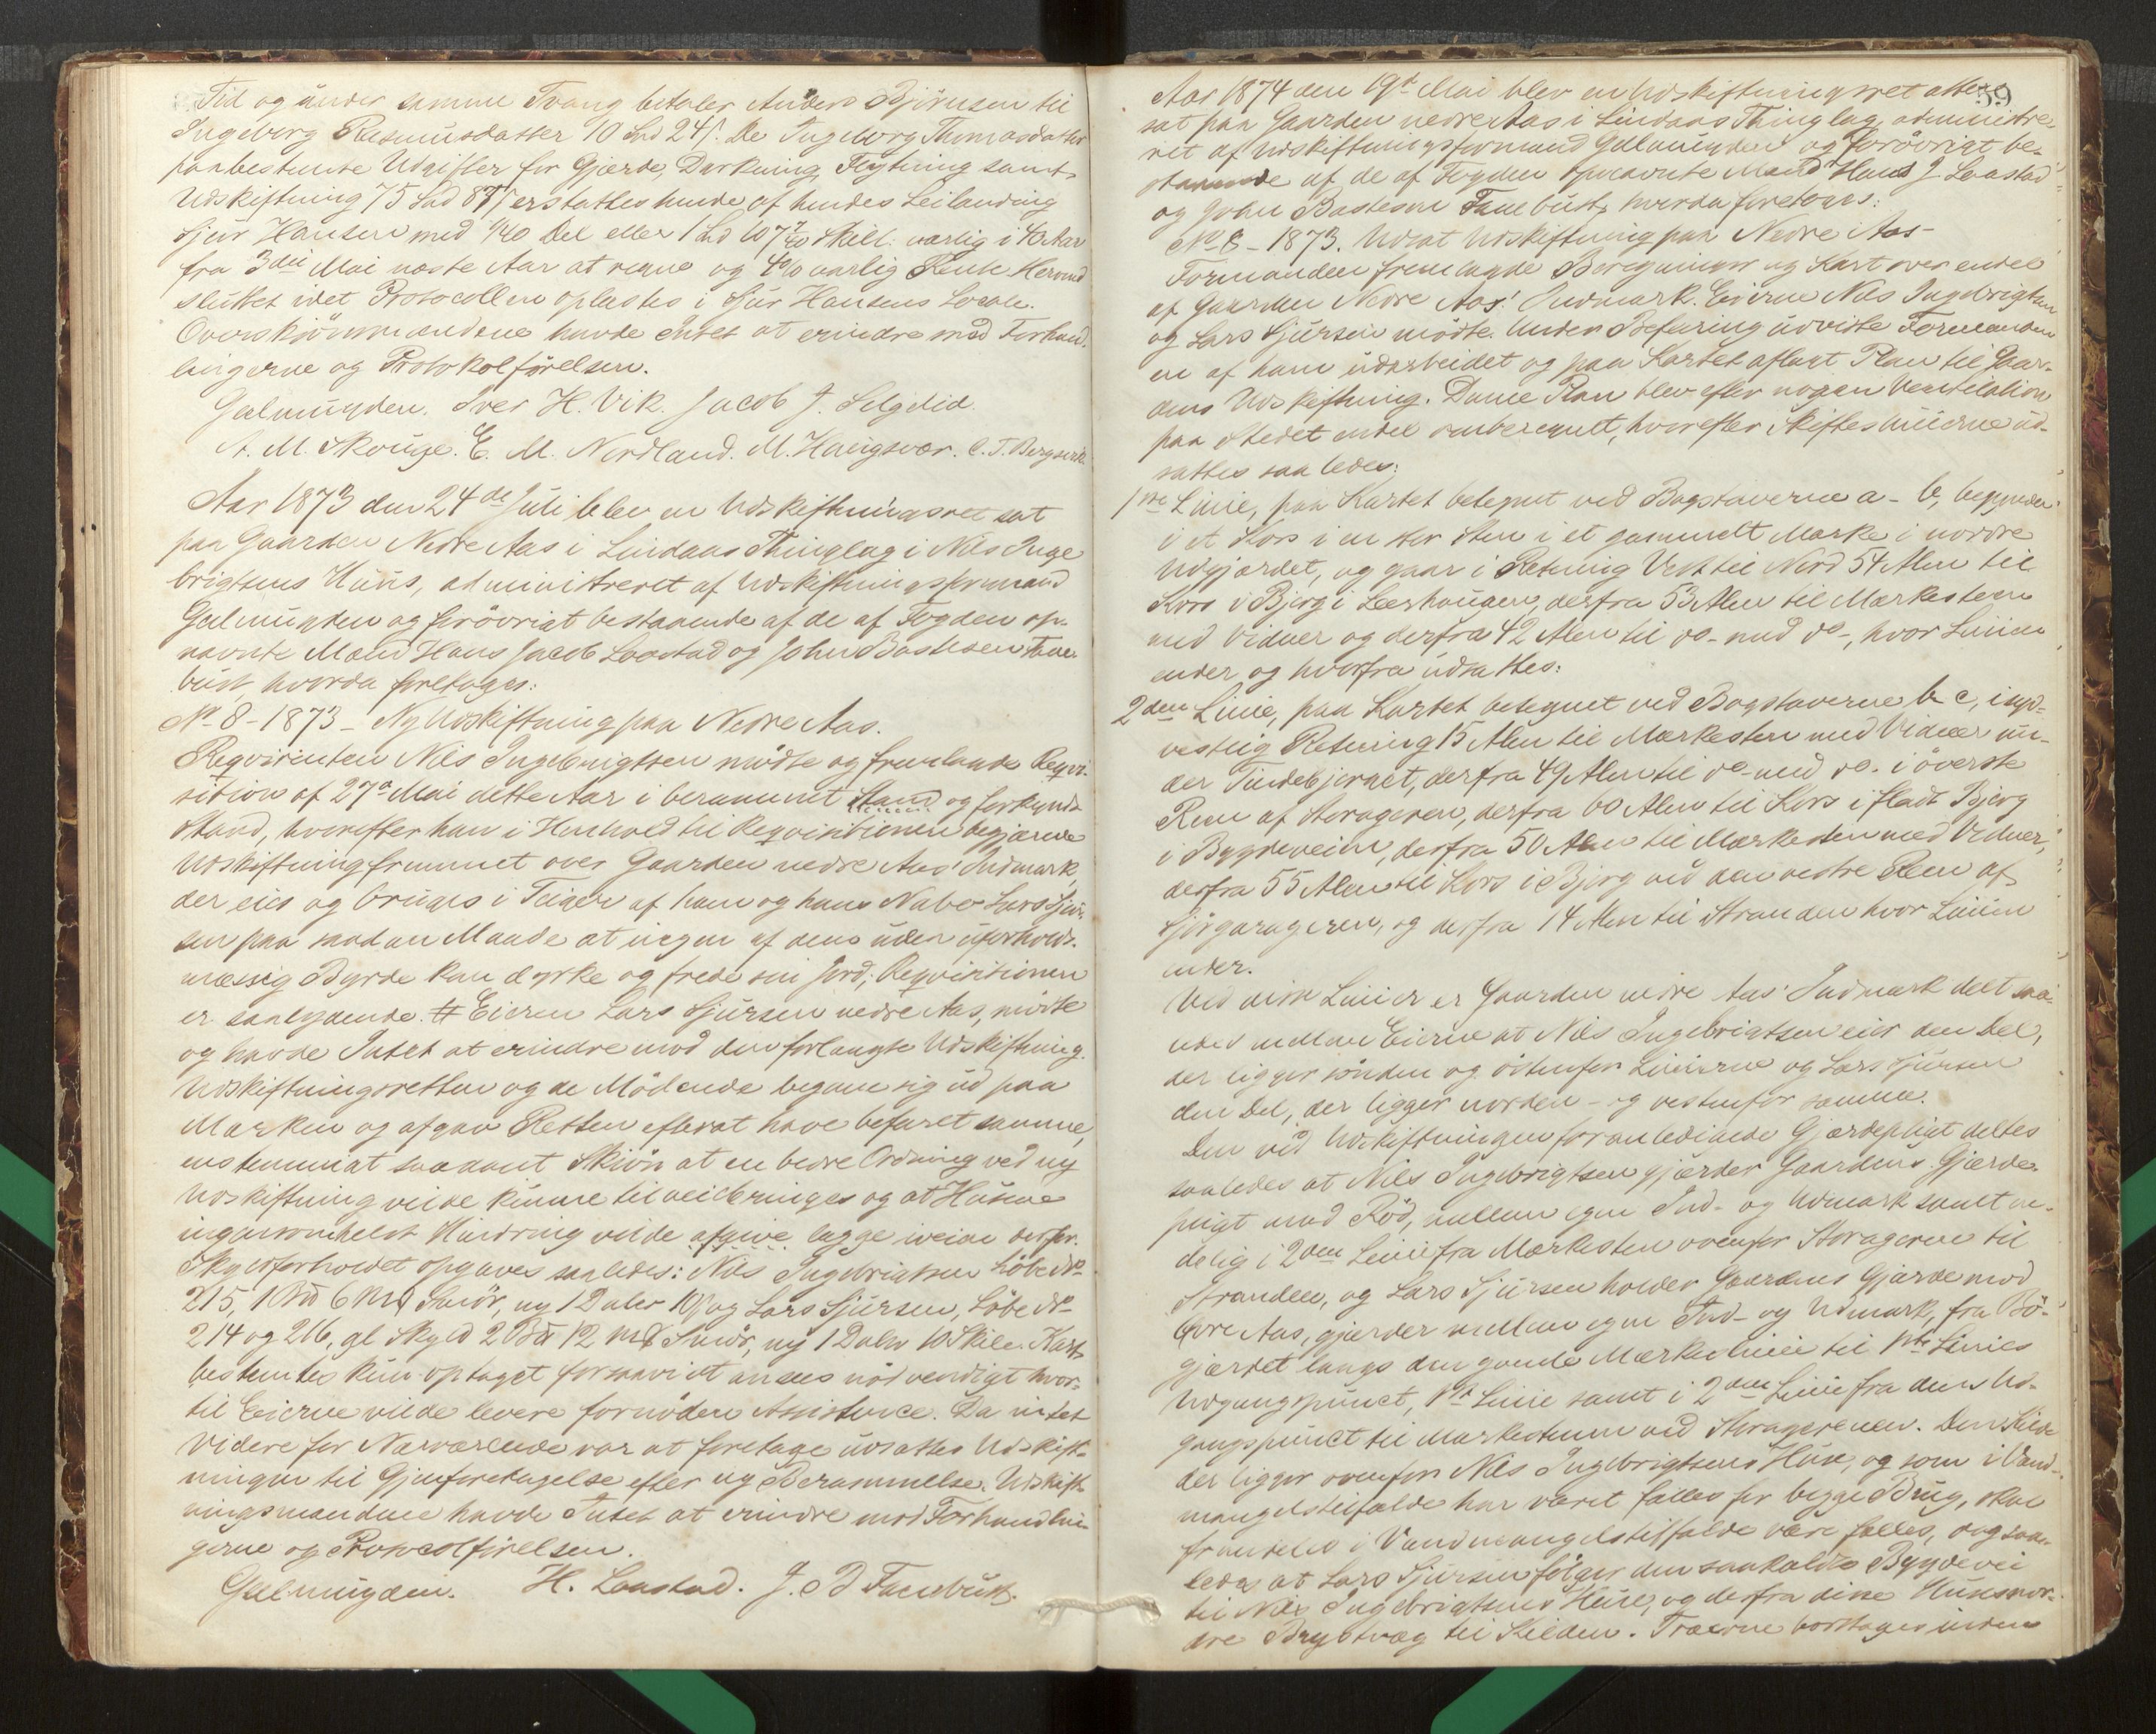 Tid og under samme Tvang betaler Anders Björnsen til
Ingeborg Rasmusdatter 10 Spd 24 s. De Ingeborg Thomasdatter
paabestemte Udgifter for Gjerde, Dyrkning, Flytning samt
Udskiftning 75 Spd 87 s erstattes hende af hendes Leilænding
Sjur Hansen med 1/40 Del eller 1 Spd 107 7/40 Skill. aarlig i 40 Aar
fra 3die Mai næste Aar at regne og 4% aarlig Rente. Hermed
sluttet idet Protocollen oplæstes i Sjur Hansens Locale.
Overskjönsmændene havde Intet at erindre mod Forhand-
lingerne og Protokolförelsen.
Gulmuyden. Iver H. Vik. Jacob J. Selgelid.
A. M. Skouge. E. M. Nordland. M. Haugsvær. C. T. Bergsvik
Aar 1873 den 24de Juli blev en Udskiftningsret sat
paa Gaarden Nedre Aas i Lindaas Thinglag i Nils Inge
brigtsens Huus, administreret af Udskiftningsformand
Gulmuyden og forövrigt bestaaende af de af Fogden op-
nævnte Mænd Hans Jacob Loostad og John Bastesen Fane-
bust, hvorda foretoges:
No 8 - 1873 - Ny Udskiftning paa Nedre Aas.
Reqvirenten Nils Ingebrigtsen mödte og fremlagde Reqvi-
sition af 27de Mai dette Aar i berammet Stand og forkyndt
Stand, hvorefter han i Henhold til Reqvisitionen begjærede
Udskiftning fremmet over Gaarden nedre Aas' Indmark,
der eies og bruges i Teiger af ham og hans Nabo Lars Sjur-
sen paa saadan Maade at ingen af dem uden uforholds-
mæssig Byrde kan dyrke og frede sin Jord; Reqvisitionen
er saalydende. # Eieren Lars Sjursen nedre Aas, mödte
og havde Intet at erindre mod den forlangte Udskiftning.
Udskiftningsretten og de Mödende begave sig ud paa
Marken og afgav Retten efterat have befaret samme,
enstemmigt saadant Skjön at en bedre Ordning ved ny
Udskiftning vilde kunne tilveiebringes og at Husene
ingensomhelst Hindring vilde afgive lægge iveien derfor.
Skyldforholdet opgaves saaledes: Nils Ingebrigtsen Löbe No
215, 1 Bd 6 Mk Smör, ny 1 Daler 10 s og Lars Sjursen, Löbe No
214 og 216, gl Skyld 2 Bd 12 Mk Smör, ny 1 Daler 10 Skill. Kart
bestemtes kun optaget forsaavidt ansees nödvendigt hvor-
til Eierne vilde levere fornöden Assistence. Da intet
Videre for Nærværende var at foretage udsattes Udskift-
ningen til Gjenforetagelse efter ny Berammelse. Udskift-
ningsmændene havde Intet at erindre mod Forhandlin-
gerne og Protocolförelsen.
Gulmuyden. H. Loostad. J. B Fanebust.
59
Aar 1874 den 19de Mai blev en Udskiftningsret atter
sat paa Gaarden nedre Aas i Lindaas Thinglag, administre-
ret af Udskiftningsformand Gulmuyden og forövrigt be-
staaende af de af Fogden opnævnte Mænd Hans J. Loostad
og John Bastesen Fanebust, hvorda foretoges:
No 8 - 1873. Udsat Udskiftning paa Nedre Aas -
Formanden fremlagde Beregninger og Kart over endel
af Gaarden Nedre Aas' Indmark. Eierne Nils Ingebrigtsen
og Lars Sjursen mödte. Under Befaring udviste Formanden
en af ham udarbeidet og paa Kartet aflagt Plan til Gaar-
dens Udskiftning. Denne Plan blev efter nogen Ventilation
paa Stedet endel omberegnet, hvorefter Skifteslinierne ud-
sattes saaledes:
1ste Linie, paa Kartet betegnet ved Bogstaverne a - b, begynder
i et Kors i en stor Sten i et gammelt Mærke i nordre
Udgjærdet, og gaar i Retning Vest til Nord 54 Alen til
Kors i Bjerg i Leerhaugen, derfra 53 Alen til Mærkesteen
med Vidner og derfra 42 Alen til do - med do -, hvor Linien
ender og hvorfra udsattes:
2den Linie, paa Kartet betegnet ved Bogstaverne b c, i syd-
vestlig Retning 15 Alen til Mærkesten med Vidner un-
der Tindebjerget, derfra 49 Alen til do - med do. i överste
Reen af Storageren, derfra 60 Alen til Kors i fladt Bjerg
i Bygdeveien, derfra 50 Alen til Mærkesten med Vidner,
derfra 55 Alen til Kors i Bjerg ved den vestre Reen af
Sjögarageren, og derfra 14 Alen til Stranden hvor Linien
ender.
Ved disse Linier er Gaarden nedre Aas' Indmark delt saa-
ledes mellem Eierne at Nils Ingebrigtsen eier den Del,
der ligger sönden og östenfor Linierne og Lars Sjursen
den Del, der ligger norden - og vestenfor samme.
Den ved Udskiftningen foranledigede Gjærdepligt deltes
saaledes at Nils Ingebrigtsen gjærder Gaardens Gjærde-
pligt mod Röd, mellem egen Ind- og Udmark samt en-
delig i 2den Linie fra Mærkesten ovenfor Storageren til
Stranden, og Lars Sjursen holder Gaardens Gjærde mod
Övre Aas, gjærder mellem egen Ind- og Udmark, fra Bö-
gjærdet langs den gamle Mærkeslinie til 1ste Linies
Udgangspunct, 1ste Linie samt i 2den Linie fra dens Ud-
gangspunct til Mærkestenen ved Storagerenen. Den Kilde
der ligger ovenfor Nils Ingebrigtsens Huse, og som i Vand-
mangelstilfælde har været fælles for begge Brug, skal
fremdeles i Vandmangelstilfælde være fælles, dog saa-
ledes at Lars Sjursen fölger den saakaldte Bygdevei
til Nils Ingebrigtsens Huse, og derfra disse Huses nor-
dre Bryetvæg til Kilden. Træerne borttages inden